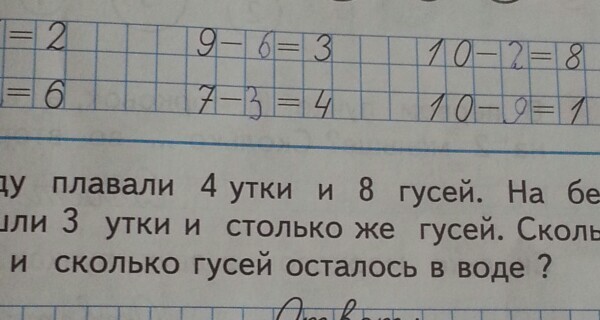 = 2 9 - 6 = 3 10 - 2 = 8
= 6 7 - 3 = 4 10 - 9 = 1
ду плавали 4 утки и 8 гусей. На бе
шли 3 утки и столько же гусей. Сколь
и сколько гусей осталось в воде ?
Ответ